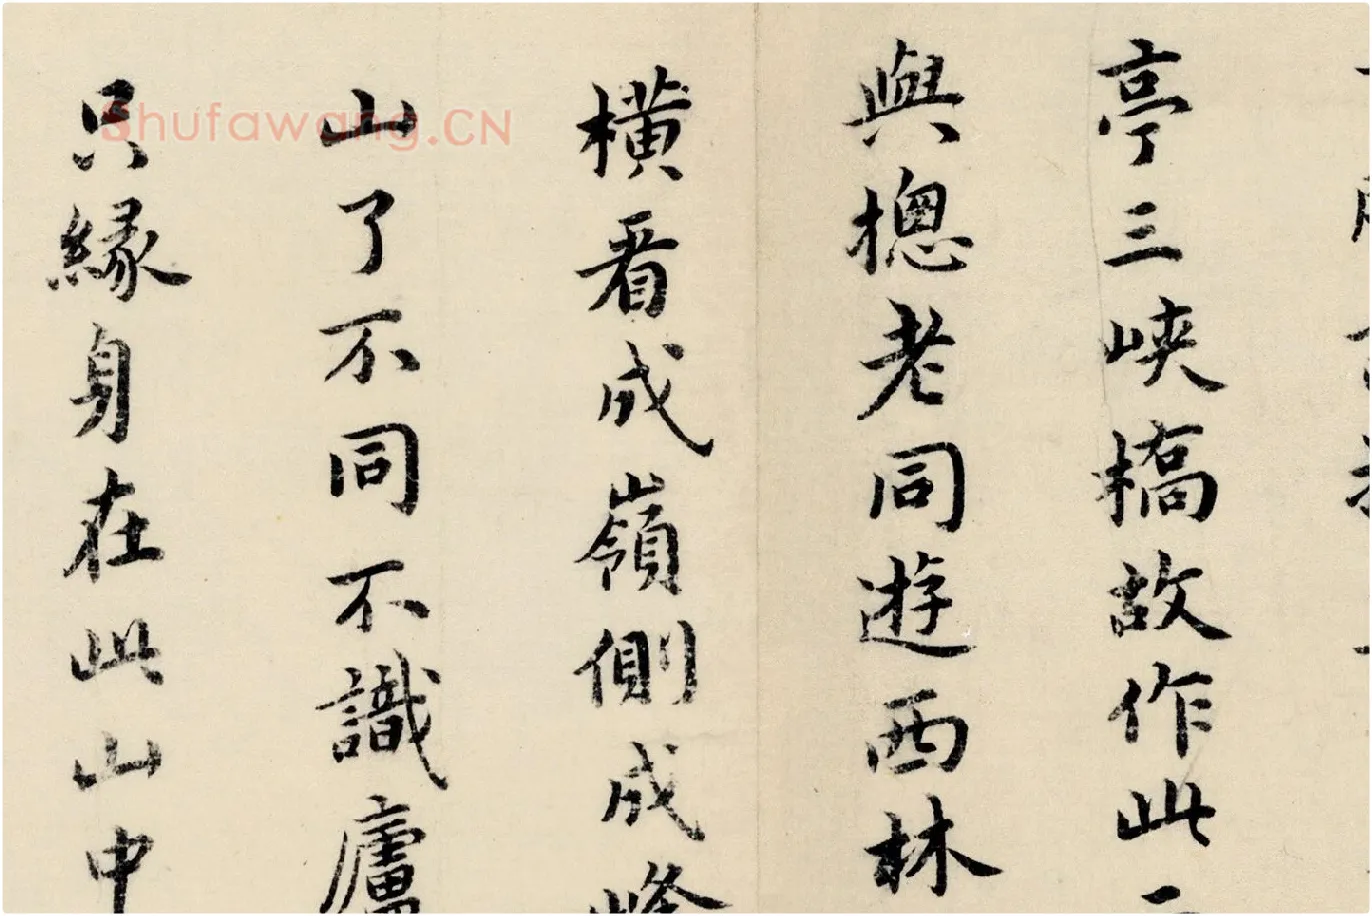 亭三峽橋故作此二
與摠老同遊西林
橫看成嶺側成峰
山了不同不識廬
只緣身在此山中
Shufawang.CN